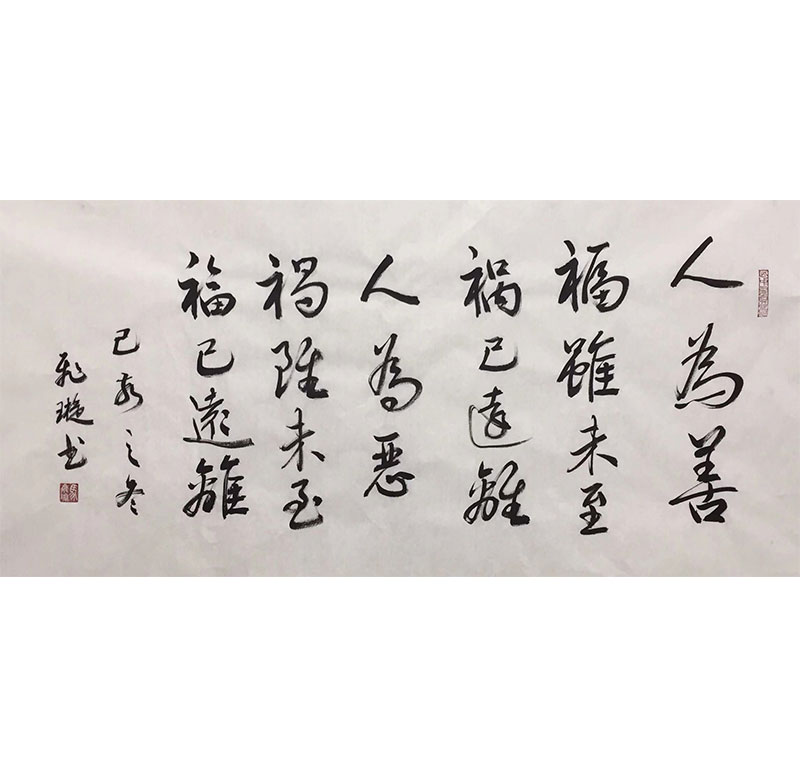 人為善
福雖未至
禍已遠離
人為惡
禍雖未至
福已遠離
己亥之冬
璇书